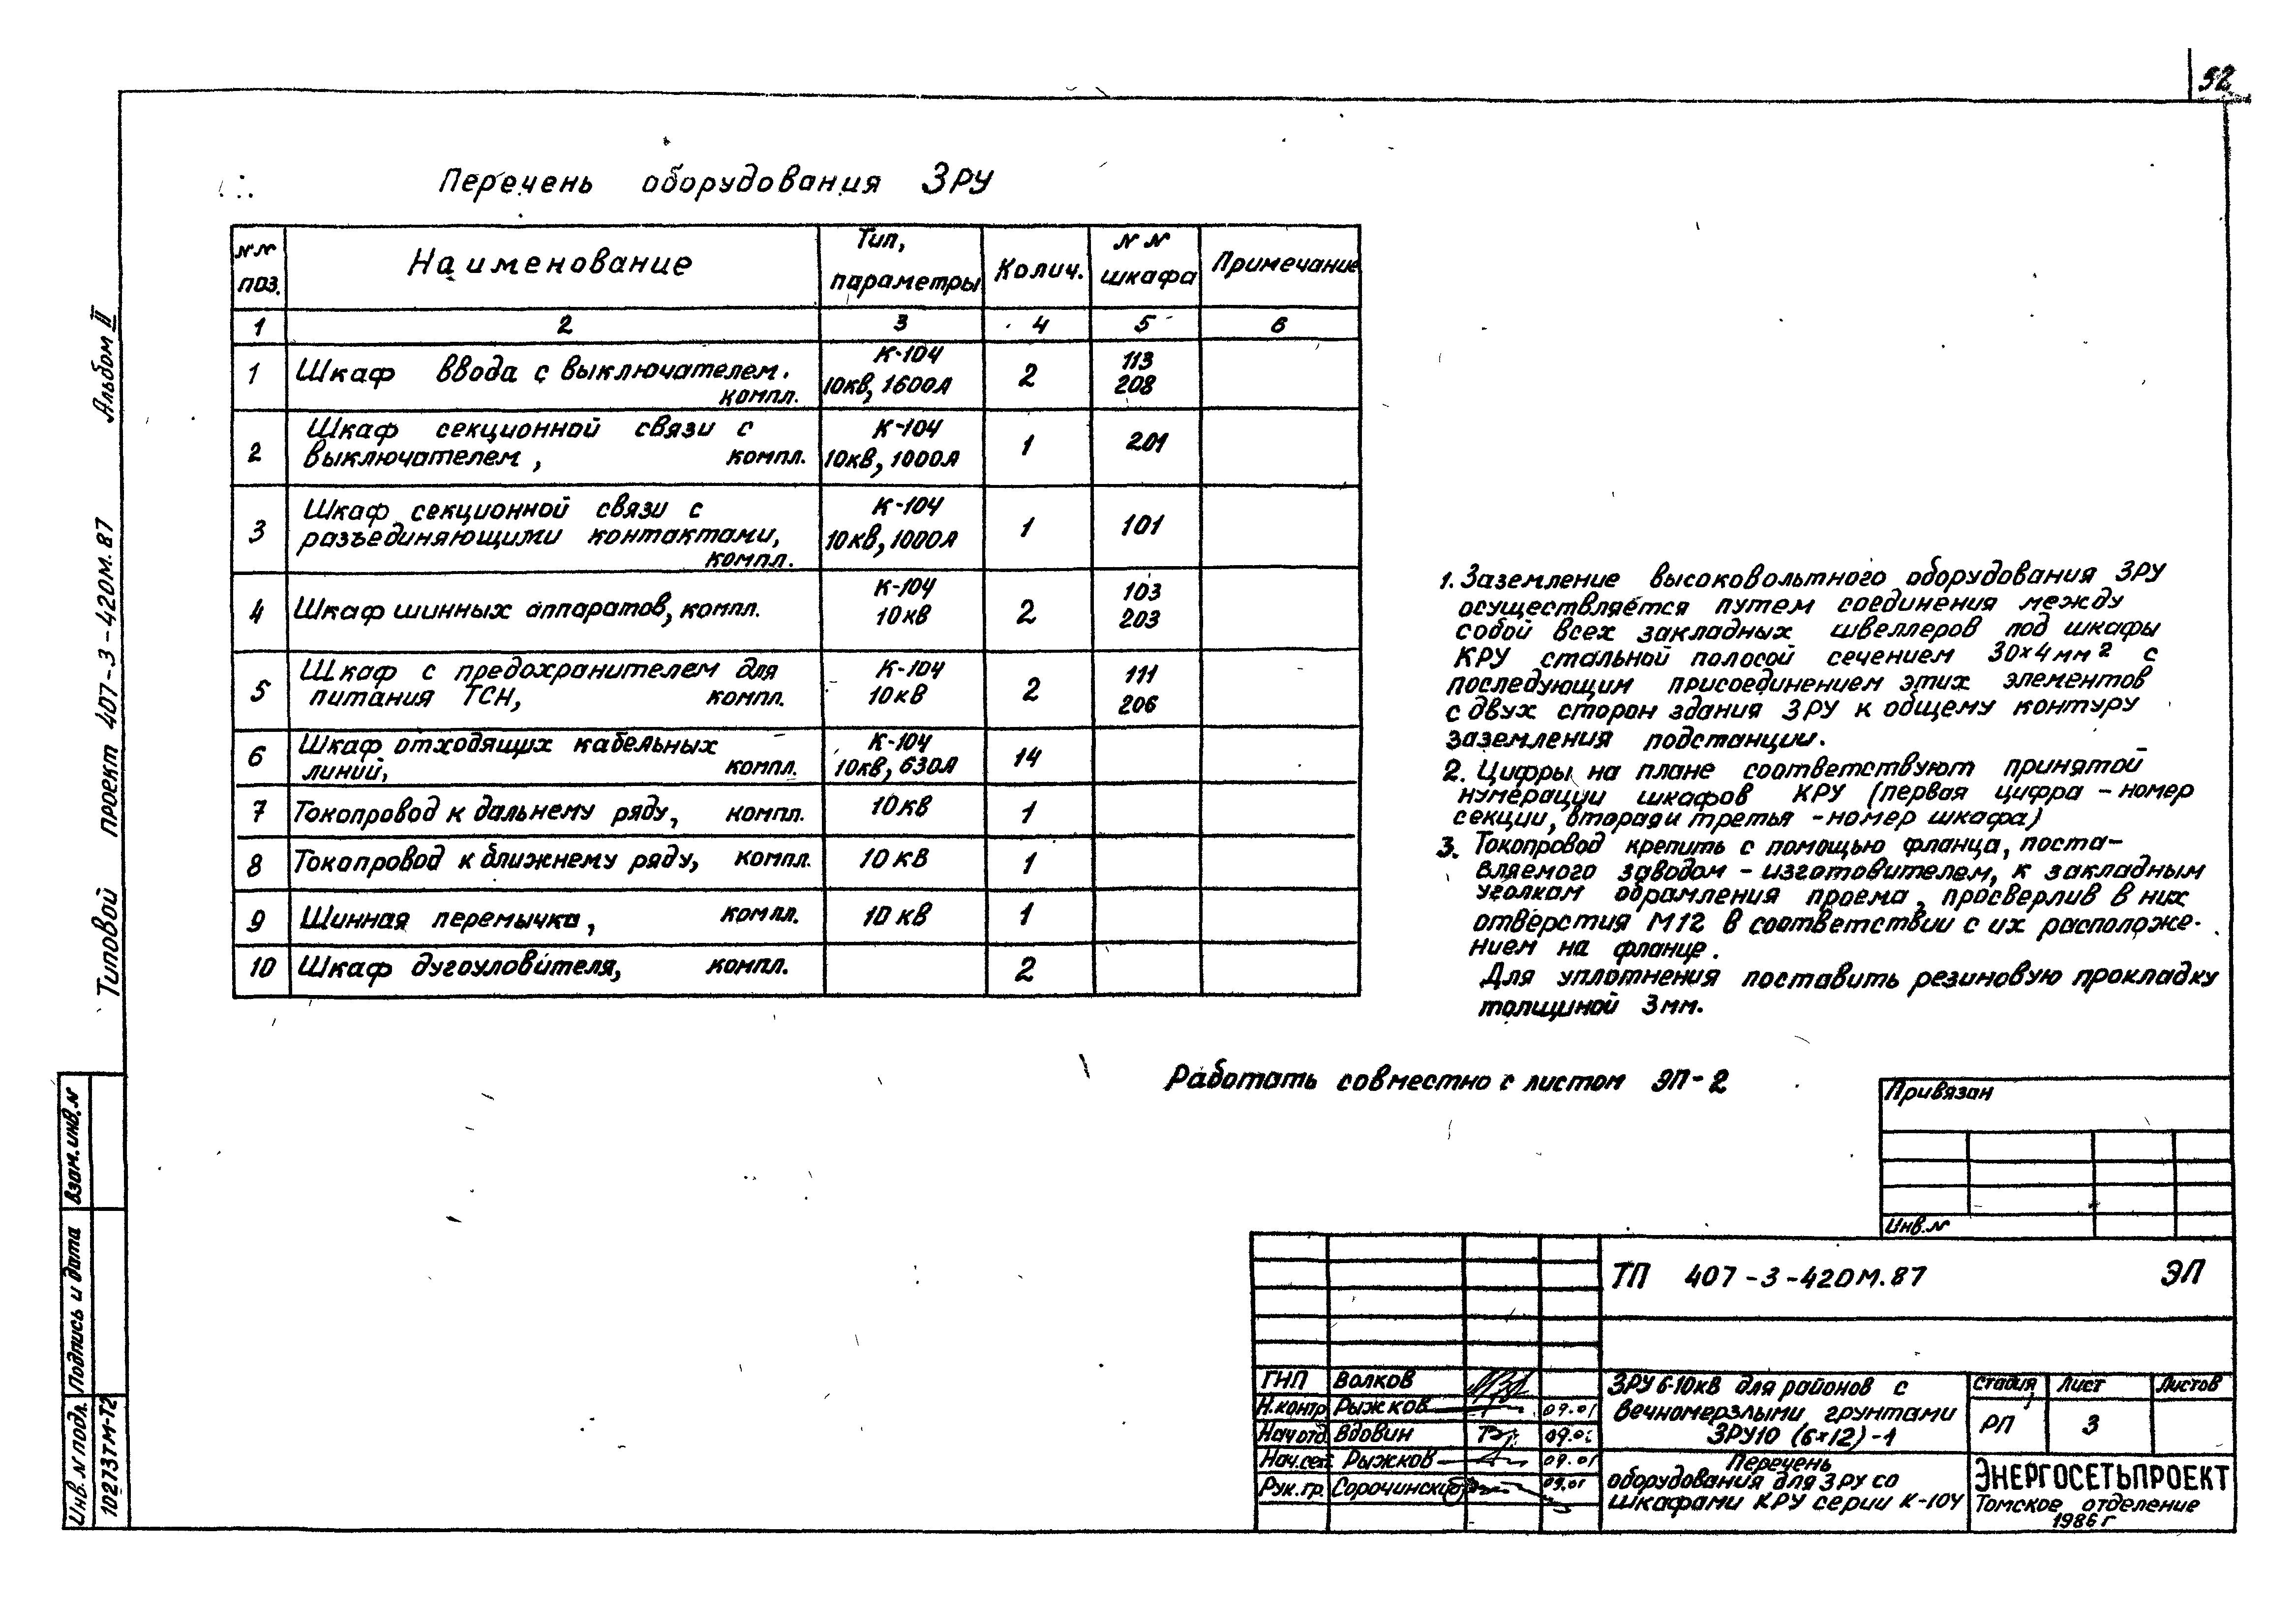 52
Перечень оборудования ЗРУ
NN поз.
Наименование
Тип, параметры
Колич.
NN шкафа
Примечание
1 2 3 4 5 6
1 Шкаф ввода с выключателем. К-104 113
компл. 10кв, 1600А 2 208
2 Шкаф секционной связи с К-104
выключателем, компл. 10кв, 1000А 1 201
3 Шкаф секционной связи с К-104
разъединяющими контактами, 10кв, 1000А 1 101
компл.
4 Шкаф шинных аппаратов, компл. К-104 10кв 2 103 203
5 Шкаф с предохранителем для К-104 111
питания ТСН, компл. 10кв 2 206
6 Шкаф отходящих кабельных К-104
линий, компл. 10кв, 630А 14
7 Токопровод к дальнему ряду, компл. 10кв 1
8 Токопровод к ближнему ряду, компл. 10кв 1
9 Шинная перемычка, компл. 10кв 1
10 Шкаф дугоуловителя, компл. 2
1. Заземление высоковольтного оборудования ЗРУ
осуществляется путем соединения между
собой всех закладных швеллеров под шкафы
КРУ стальной полосой сечением 30×4мм² с
последующим присоединением этих элементов
с двух сторон здания ЗРУ к общему контуру
заземления подстанции.
2. Цифры на плане соответствуют принятой
нумерации шкафов КРУ (первая цифра – номер
секции, вторая и третья – номер шкафа)
3. Токопровод крепить с помощью фланца, поста-
вляемого заводом – изготовителем, к закладным
уголкам обрамления проема, просверлив в них
отверстия М12 в соответствии с их расположе-
нием на фланце.
Для уплотнения поставить резиновую прокладку
толщиной 3мм.
Работать совместно с листом ЭП-2
Привязан
Инв.N
ТП 407-3-420М.87 ЭП
ГНП Волков
Н.контр Рыжков 09.01
Нач отд Вдовин
Нач.сек. Рыжков 09.01
Рук.гр. Сорочинский 09.01
ЗРУ 6-10кв для районов с
вечномерзлыми грунтами
ЗРУ10 (6×12)-1
Стадия Лист Листов
РП 3
Перечень
оборудования для ЗРУ со
шкафами КРУ серии К-104
ЭНЕРГОСЕТЬПРОЕКТ
Томское отделение
1986 г
Типовой проект 407-3-420М.87 Альбом II
Взам.инв.N
Подпись и дата
Инв.N подл.
10273ТМ-Т2